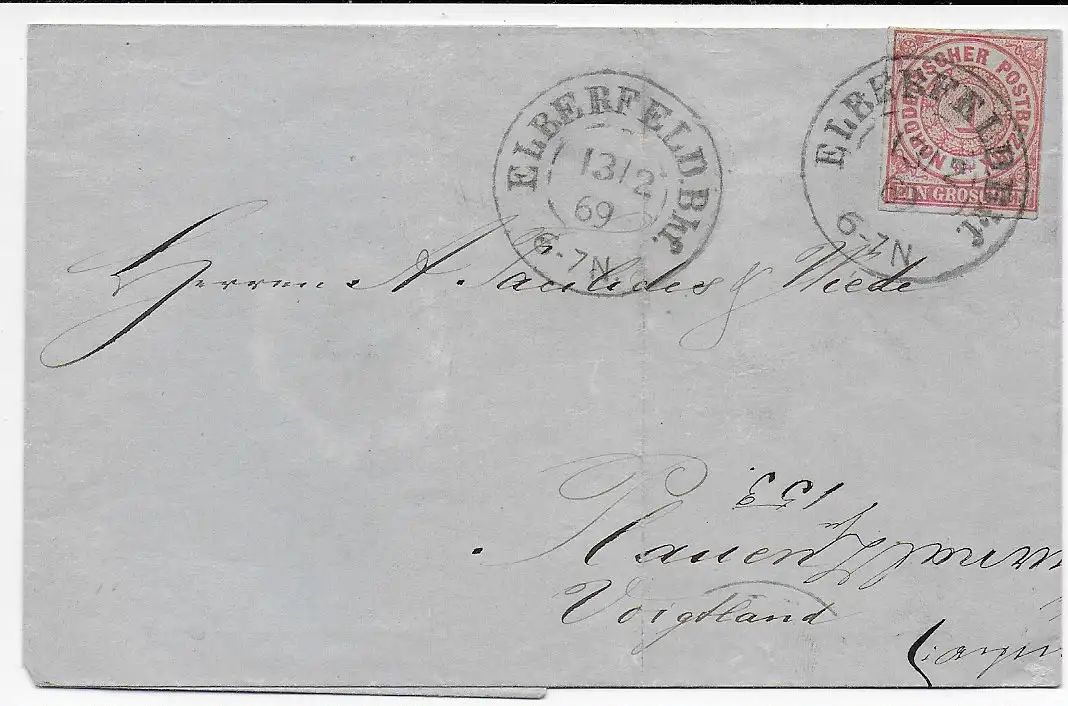 ELBERFELD.Bhf.
13/2
69
6-7N.
NORDDEUTSCHER POSTBEZIRK
1
EIN GROSCHEN
ELBERFELD Bhf.
6-7N
Herren A. & Wiede
Plauen
Voigtland
153